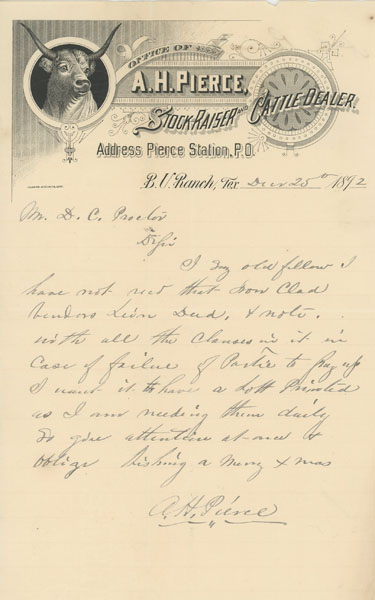 OFFICE OF
A.H. PIERCE,
STOCK RAISER AND CATTLE DEALER.
Address Pierce Station, P.O.
B.U. Ranch, Tex Decr 25th 1892
Mr. D. C. Proctor
Dr Sir
I say old fellow I
have not recd that Iron Clad
Vendors Lien Deed, & note,
with all the Clauses in it in
Case of failure of Partie to pay up
I want it to have a Lott Printed
as I am needing them daily
So give attention at once &
oblige wishing a Merry Xmas
A.H. Pierce